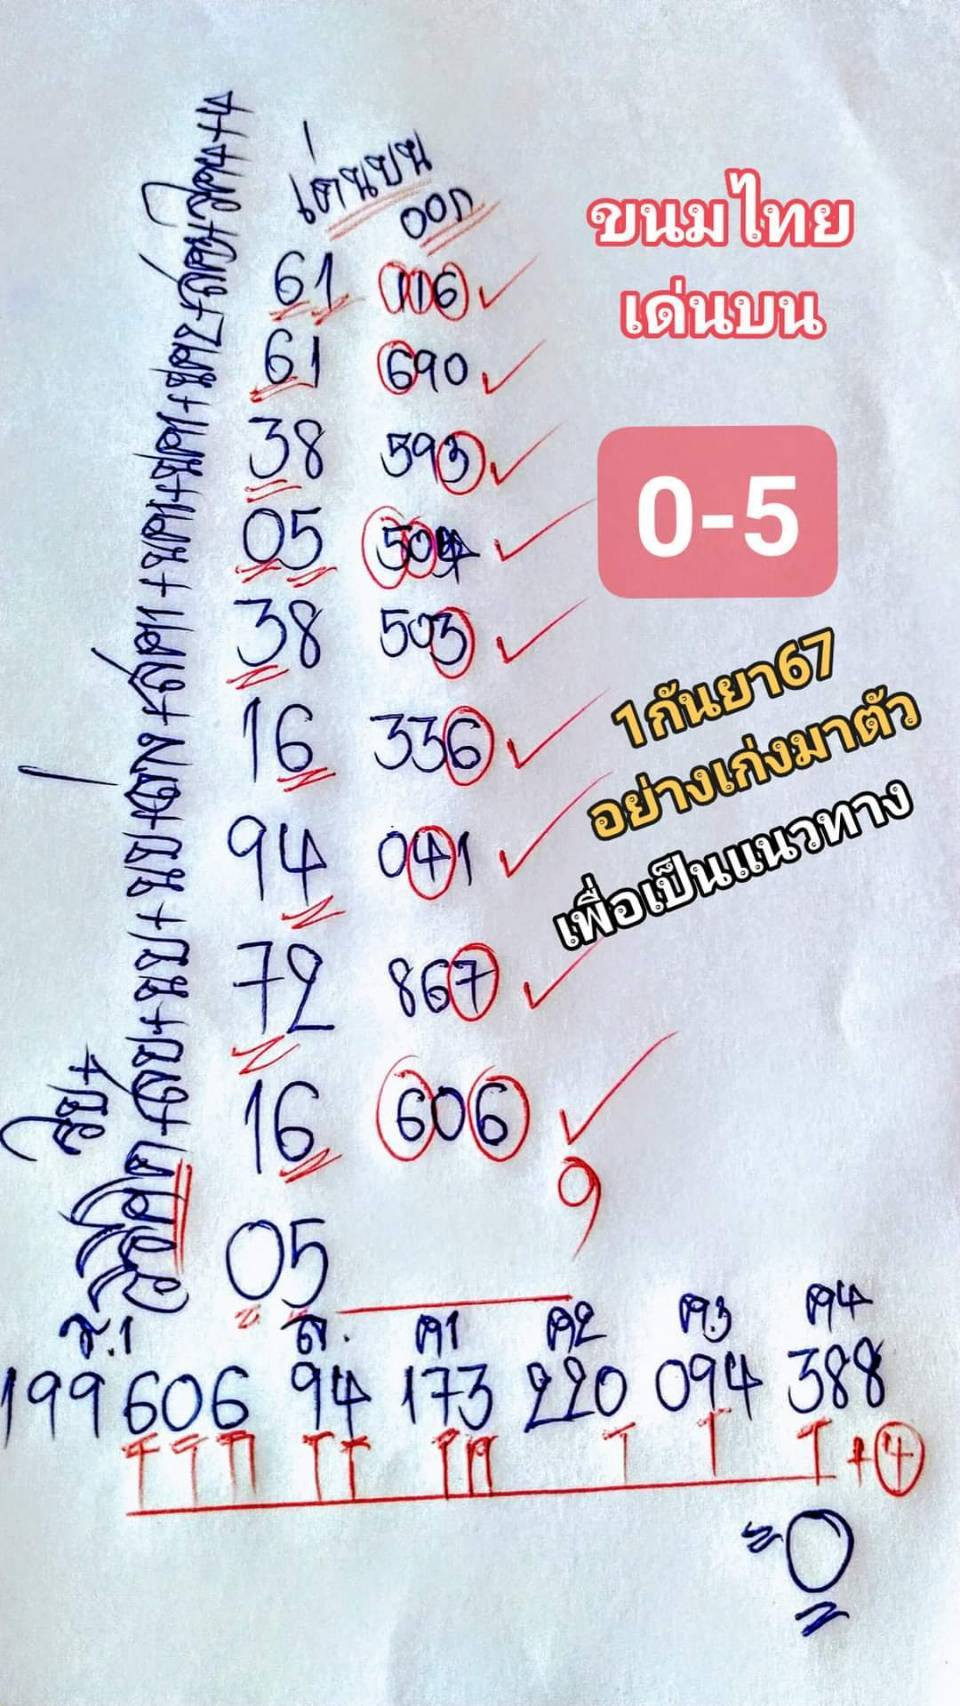 เด่นบน
ออก
ขนมไทย
เด่นบน
61 116
61 690
38 593
0-5
05 504
38 503
1กันยา67
อย่างเก่งมาตัว
เพื่อเป็นแนวทาง
16 336
94 041
72 867
16 606
9
05
ร.1 ล. ค1 ค2 ค.3 ค4
199 606 94 173 220 094 388
+4
=0